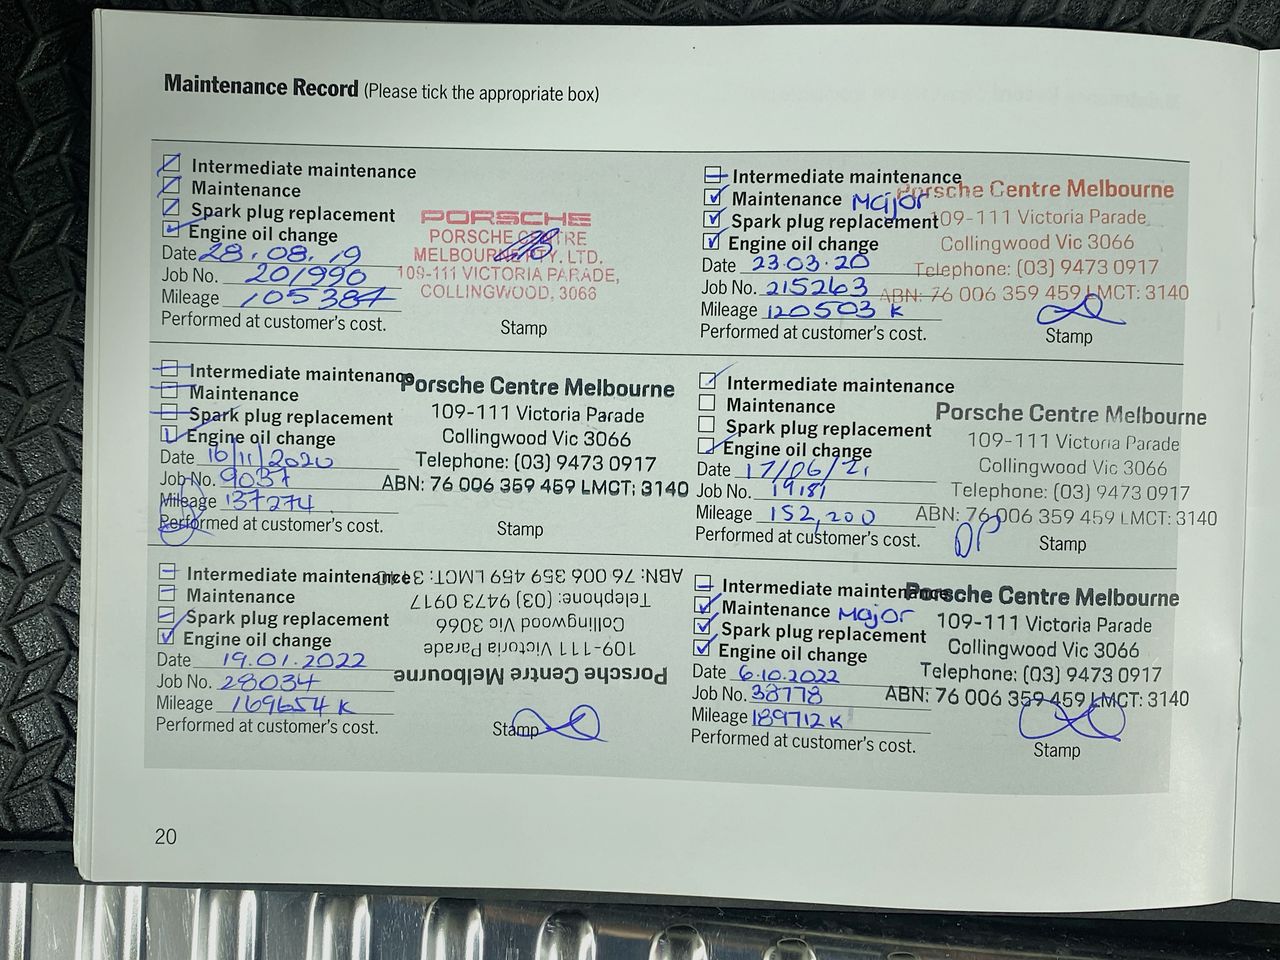 Maintenance Record (Please tick the appropriate box)
Intermediate maintenance
Maintenance
Spark plug replacement
Engine oil change
Date 28.08.19
Job No. 201990
Mileage 105384
Performed at customer's cost.
PORSCHE
PORSCHE CENTRE
MELBOURNE PTY. LTD.
109-111 VICTORIA PARADE,
COLLINGWOOD, 3066
Stamp
Intermediate maintenance
Maintenance Major
Spark plug replacement
Engine oil change
Date 23.03.20
Job No. 215263
Mileage 120503 K
Performed at customer's cost.
Porsche Centre Melbourne
109-111 Victoria Parade
Collingwood Vic 3066
Telephone: (03) 9473 0917
ABN: 76 006 359 459 LMCT: 3140
Stamp
Intermediate maintenance
Maintenance
Spark plug replacement
Engine oil change
Date 16/11/2020
Job No. 9037
Mileage 137274
Performed at customer's cost.
Porsche Centre Melbourne
109-111 Victoria Parade
Collingwood Vic 3066
Telephone: (03) 9473 0917
ABN: 76 006 359 459 LMCT: 3140
Stamp
Intermediate maintenance
Maintenance
Spark plug replacement
Engine oil change
Date 17/06/21
Job No. 19181
Mileage 152,200
Performed at customer's cost.
Porsche Centre Melbourne
109-111 Victoria Parade
Collingwood Vic 3066
Telephone: (03) 9473 0917
ABN: 76 006 359 459 LMCT: 3140
Stamp
Intermediate maintenance
Maintenance
Spark plug replacement
Engine oil change
Date 19.01.2022
Job No. 28034
Mileage 169654 K
Performed at customer's cost.
Porsche Centre Melbourne
109-111 Victoria Parade
Collingwood Vic 3066
Telephone: (03) 9473 0917
ABN: 76 006 359 459 LMCT: 3140
Stamp
Intermediate maintenance
Maintenance Major
Spark plug replacement
Engine oil change
Date 6.10.2022
Job No. 38778
Mileage 189712 K
Performed at customer's cost.
Porsche Centre Melbourne
109-111 Victoria Parade
Collingwood Vic 3066
Telephone: (03) 9473 0917
ABN: 76 006 359 459 LMCT: 3140
Stamp
20